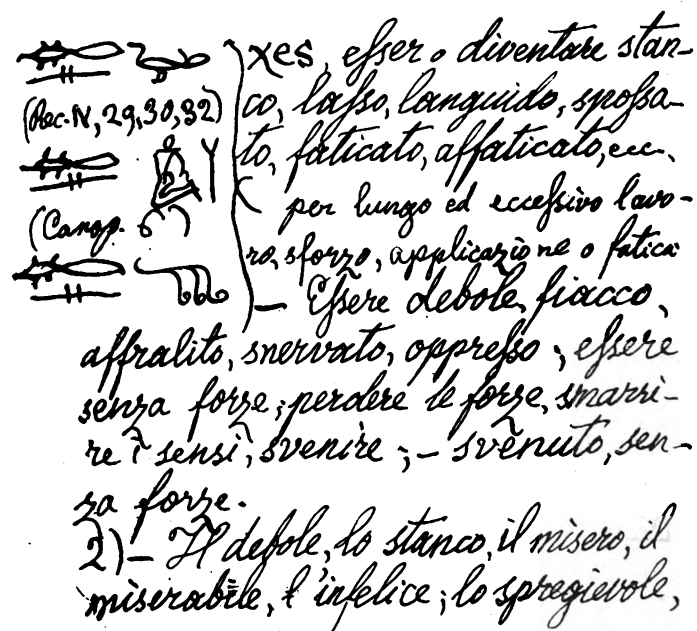 xes, esser o diventare stan-
(Rec. IV, 29, 30, 32)
co, lasso, languido, spossa-
to, faticato, affaticato, ecc.
per lungo ed eccessivo lavo-
(Canop.
ro, sforzo, applicazione o fatica
— Essere debole, fiacco,
affralito, snervato, oppresso; essere
senza forze; perdere le forze, smarri-
re i sensi, svenire; – svenuto, sen-
za forze.
2) — Il debole, lo stanco, il misero, il
miserabile, l'infelice; lo spregievole,